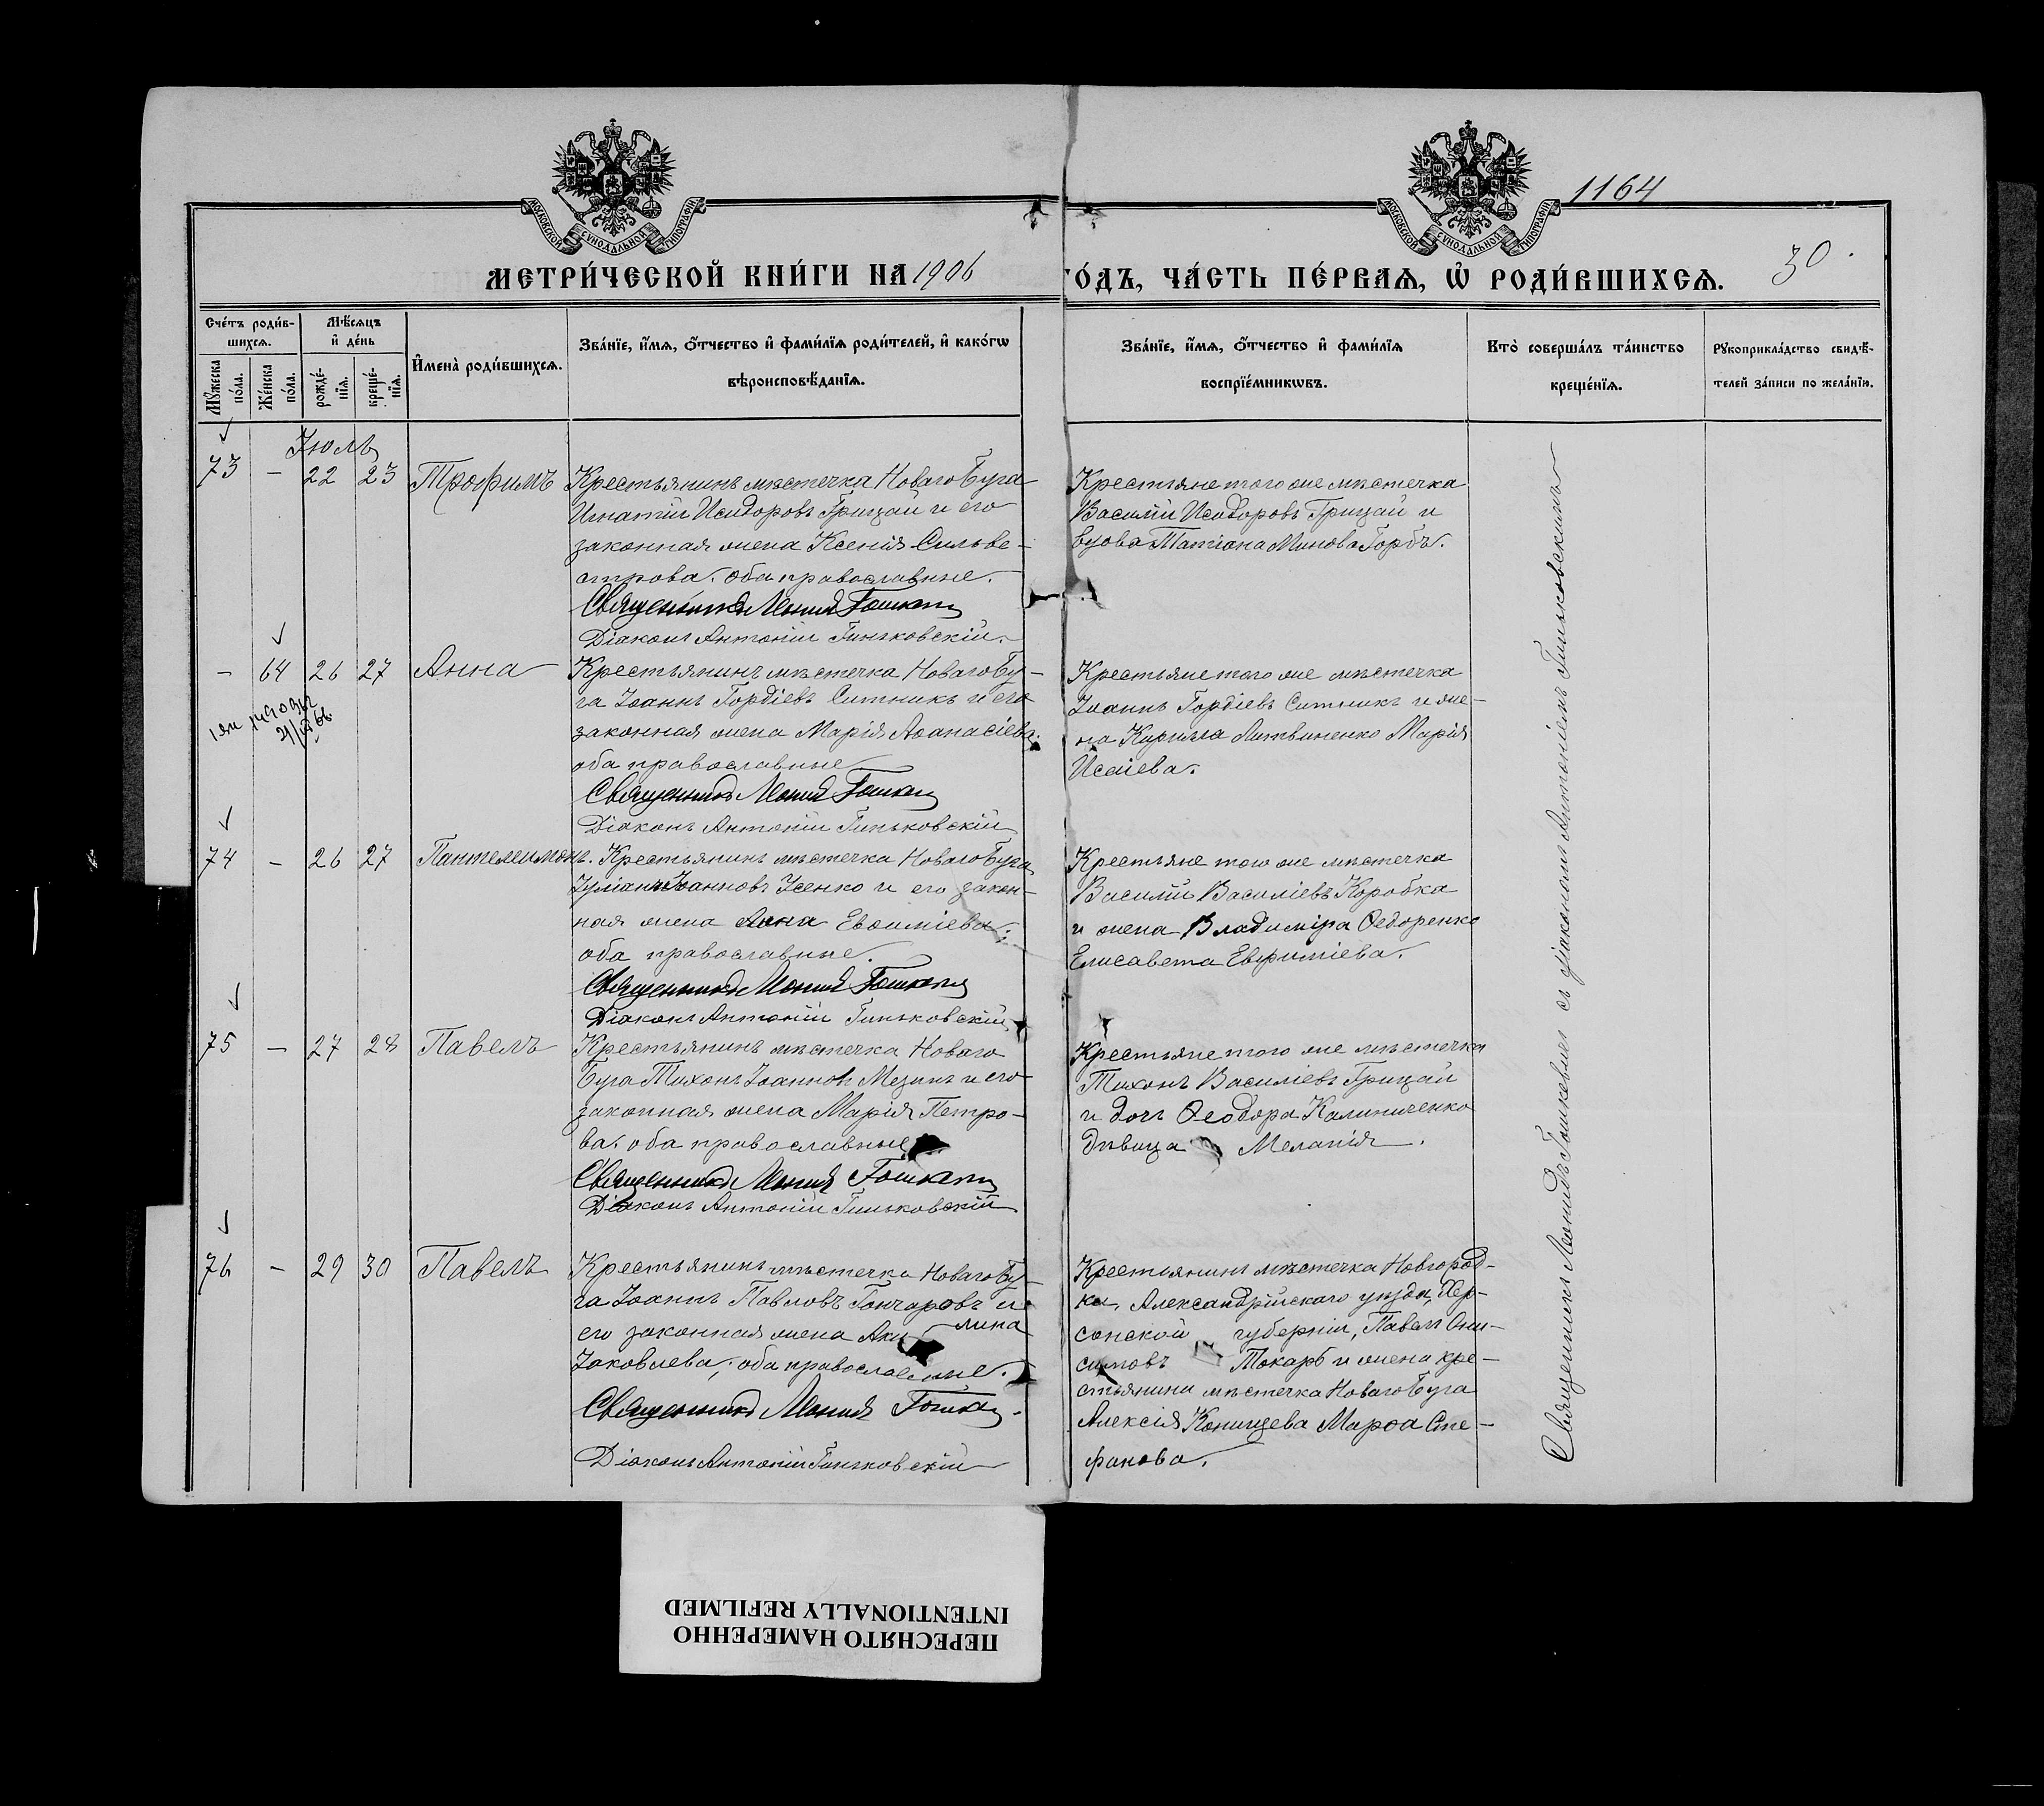 МОСКОВСКОЙ СѴНОДАЛЬНОЙ ТИПОГРАФІИ
МОСКОВСКОЙ СѴНОДАЛЬНОЙ ТИПОГРАФІИ
1164
МЕТРИ́ЧЕСКОЙ КНИ́ГИ НА 1906
ГО́ДЪ, ЧА́СТЬ ПЕ́РВАѦ, Ѡ҆ РОДИ́ВШИХСѦ.
30.
Сче́тъ роди́в-
шихсѧ.
Мꙋ́жеска
по́ла.
Же́нска
по́ла.
Мѣ́сѧцъ
и҆ де́нь
рожде́-
нїѧ.
креще́-
нїѧ.
И҆мена̀ роди́вшихсѧ.
Зва́нїе, и҆́мѧ, ѻ҆́тчество и҆ фами́лїѧ роди́телей, и҆ како́гѡ
вѣроисповѣ́данїѧ.
Зва́нїе, и҆́мѧ, ѻ҆́тчество и҆ фами́лїѧ
воспрїе́мникѡвъ.
Кто̀ соверша́лъ та́инство
креще́нїѧ.
Рꙋкоприкла́дство свидѣ́-
телей за́писи по жела́нїю.
Іюль
73 - 22 23 Трофимъ
Крестьянинъ мѣстечка Новаго Буга
Игнатій Исидоровъ Грицай и его
законная жена Ксенія Сильве-
строва. оба православные.
Священникъ Леонид
Діаконъ Антоній Гиньковскій.
Крестьяне того же мѣстечка
Василій Исидоровъ Грицай и
вдова Татіана Минова Горбъ.
- 64 26 27 Анна
Крестьянинъ мѣстечка Новаго Бу-
га Іоаннъ Гордіевъ Ситникъ и его
законная жена Марія Аѳанасіева.
оба православные
Священникъ Леонид
Діаконъ Антоній Гиньковскій
Крестьяне того же мѣстечка
Іоаннъ Гордіевъ Ситникъ и же-
на Кирилла Литвиненко Марія
Исаіева.
74 - 26 27 Пантелеимонъ.
Крестьянинъ мѣстечка Новаго Буга
Іуліанъ Іоанновъ Усенко и его закон-
ная жена Анна Евѳиміева;
оба православные.
Священникъ Леонид
Діаконъ Антоній Гиньковскій
Крестьяне того же мѣстечка
Василій Василіевъ Коробка
и жена Владиміра Ѳедоренко
Елисавета Евфиміева.
75 - 27 28 Павелъ
Крестьянинъ мѣстечка Новаго
Буга Тихонъ Іоанновъ Мезинъ и его
законная жена Марія Петро-
ва. оба православные
Священникъ Леонид
Діаконъ Антоній Гиньковскій
Крестьяне того же мѣстечка
Тихонъ Василіевъ Грицай
и дочь Ѳеодора Калиниченко
дѣвица Меланія.
76 - 29 30 Павелъ
Крестьянинъ мѣстечка Новаго Бу-
га Іоаннъ Павловъ Гончаровъ и
его законная жена Аки-лина
Іаковлева; оба православные.
Священникъ Леонид
Діаконъ Антоній Гиньковскій
Крестьянинъ мѣстечка Новгород-
ка, Александрійскаго уѣзда, Хер-
сонской губерніи, Павелъ Они-
симовъ Токарь и жена кре-
стьянина мѣстечка Новаго Буга
Алексія Конищева Марѳа Сте-
фанова.
Священникъ Леонидъ Гошкевичъ съ діакономъ Антоніемъ Гиньковскимъ
ПЕРЕСНЯТО НАМЕРЕННО
INTENTIONALLY REFILMED